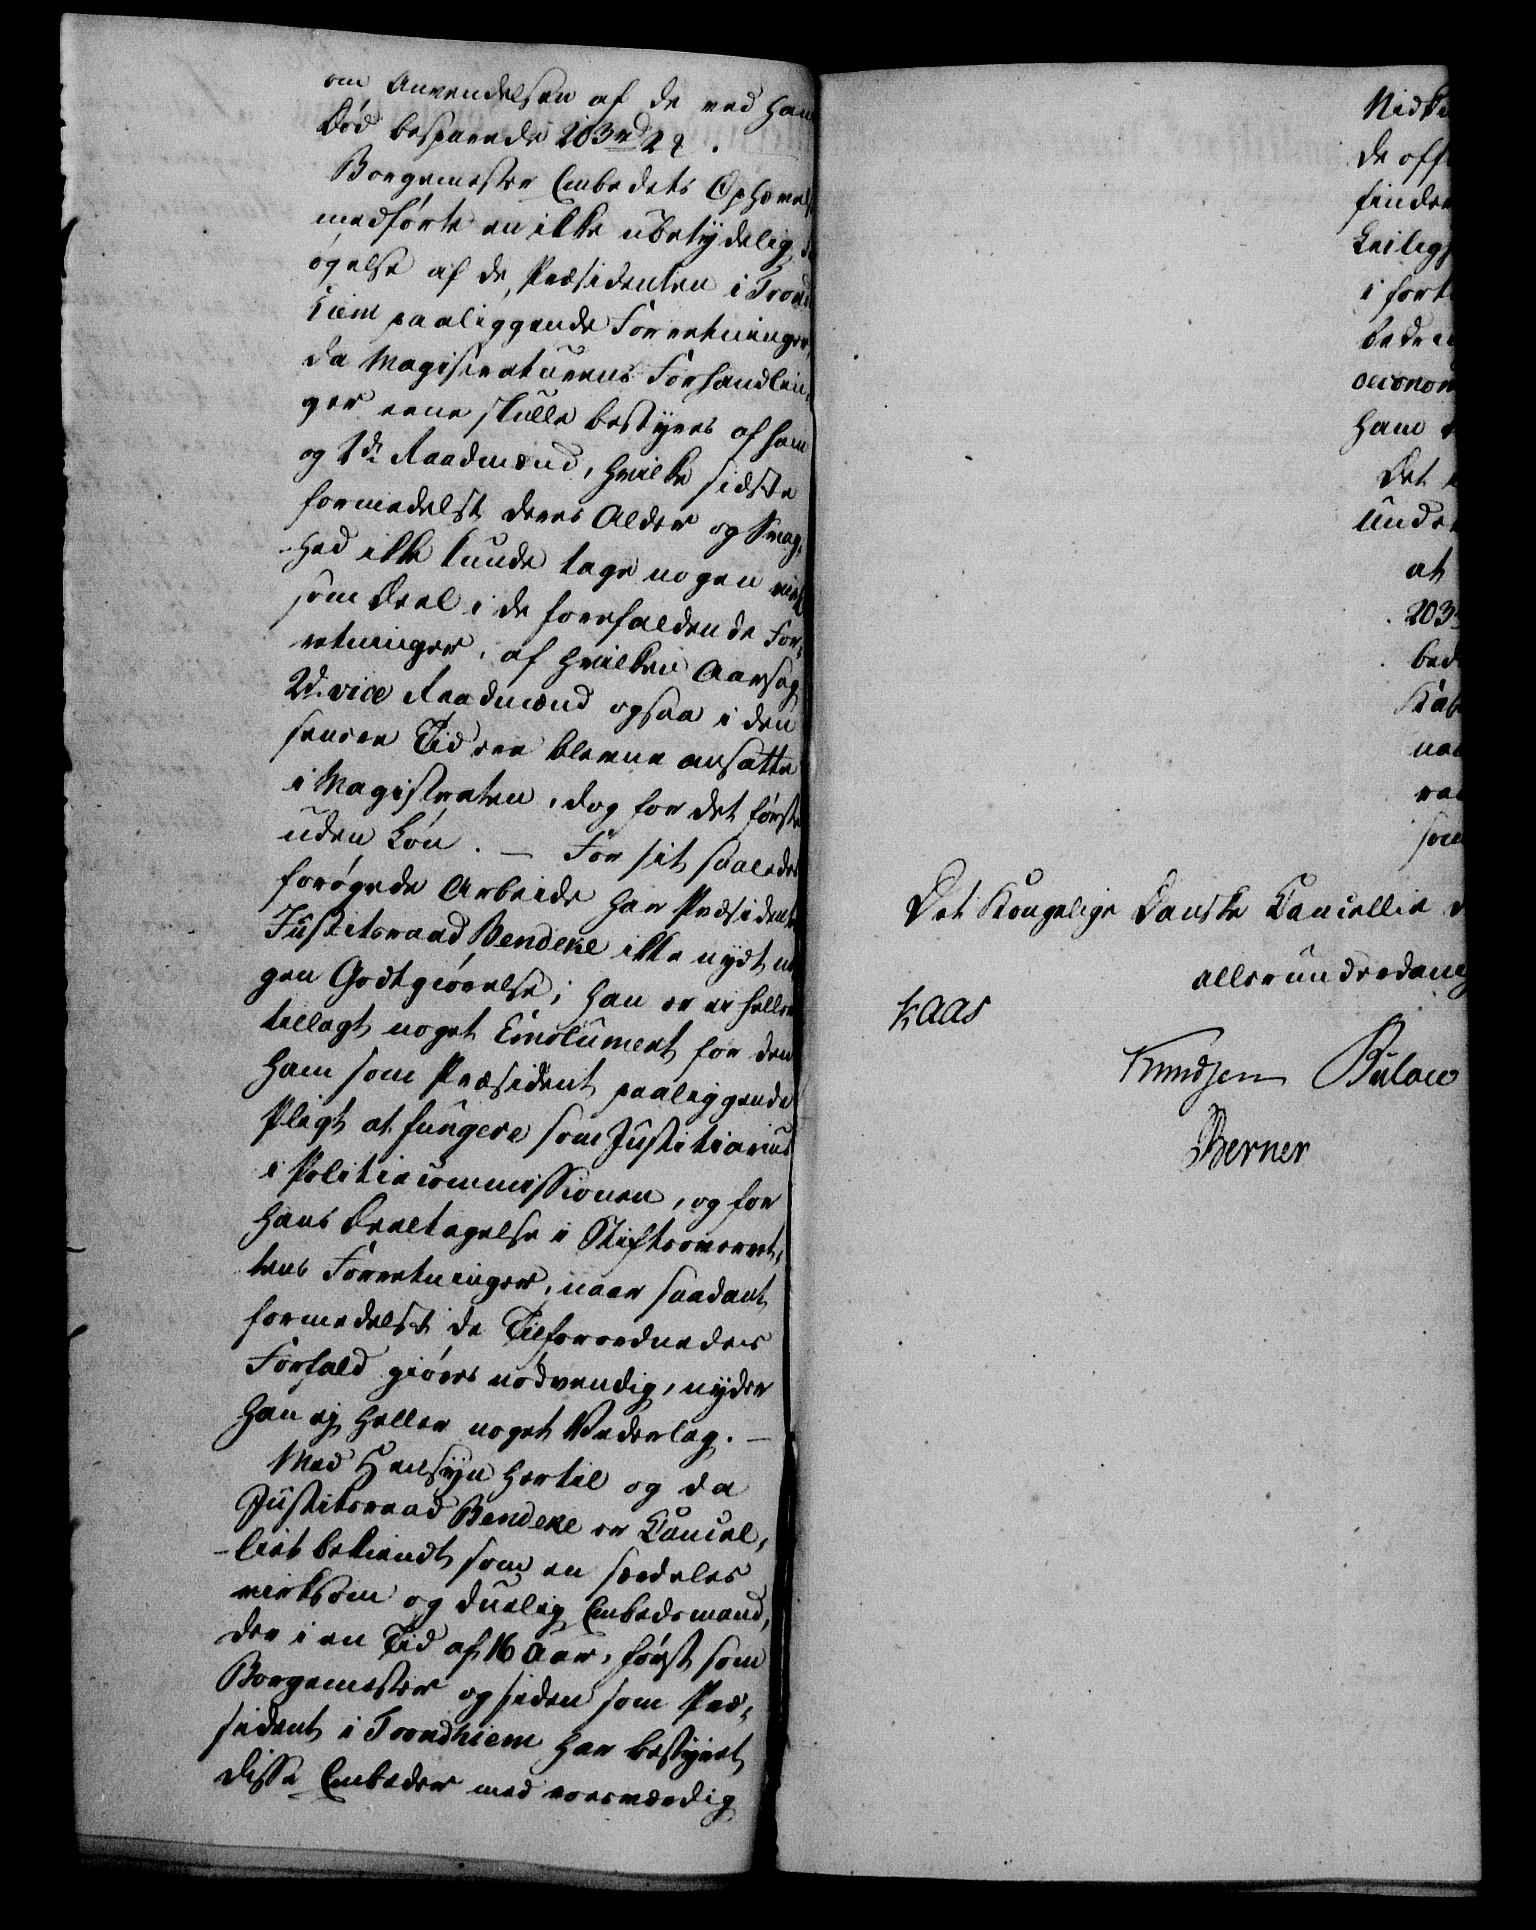 om Anvendelsen af de ved hans
Død besparede 203 rd 2 ß.
Borgemester Embedets Ophævelse
medførte en ikke ubetydelig
øgelse af de, Præsidenten i Trond
hiem paaliggende Forretninger,
da Magistraturens Forhandlin,
ger ene skulle bestyres af ham
og 2de Raadmænd, hvilke sidste
formedelst deres Alder og Svag,
hed ikke kunde tage nogen virk
som Deel i de forefaldende For,
retninger, af hvilken Aarsag
2de vice Raadmænd ogsaa i den
senere Tid ere blevne ansatte
i Magistraten, dog for det første
uden Løn. — For sit saaledes
forøgede Arbeide har Præsident
Justitsraad Bendeke ikke nydt no
gen Godtgiørelse; han er ei heller
tillagt noget Emolument for den
ham som Præsident paaliggende
Pligt at fungere som Justitiarius
i Politiecommissionen, og for
hans Deeltagelse i Stiftsoverret,
tens Forretninger, naar saadant
formedelst de Tilforordnedes
Forfald giøres nødvendig, nyder
han ej heller noget Vederlag. —
Med Hensyn hertil og da
Justitsraad Bendeke er Cancel,
liet bekiendt som en særdeles
virksom og duelig Embedsmand,
der i en Tid af 16 Aar, først som
Borgemester og siden som Præ,
sident i Trondhiem har bestyret
disse Embeder med roesværdig
Nidki
de off
finder
Leilig
i fort
oeconom
ham
Det
Und
at
203
bed
Det Kongelige Danske Cancellie
allerunderdanig
Kaas
Knudsen Bülow
Berner